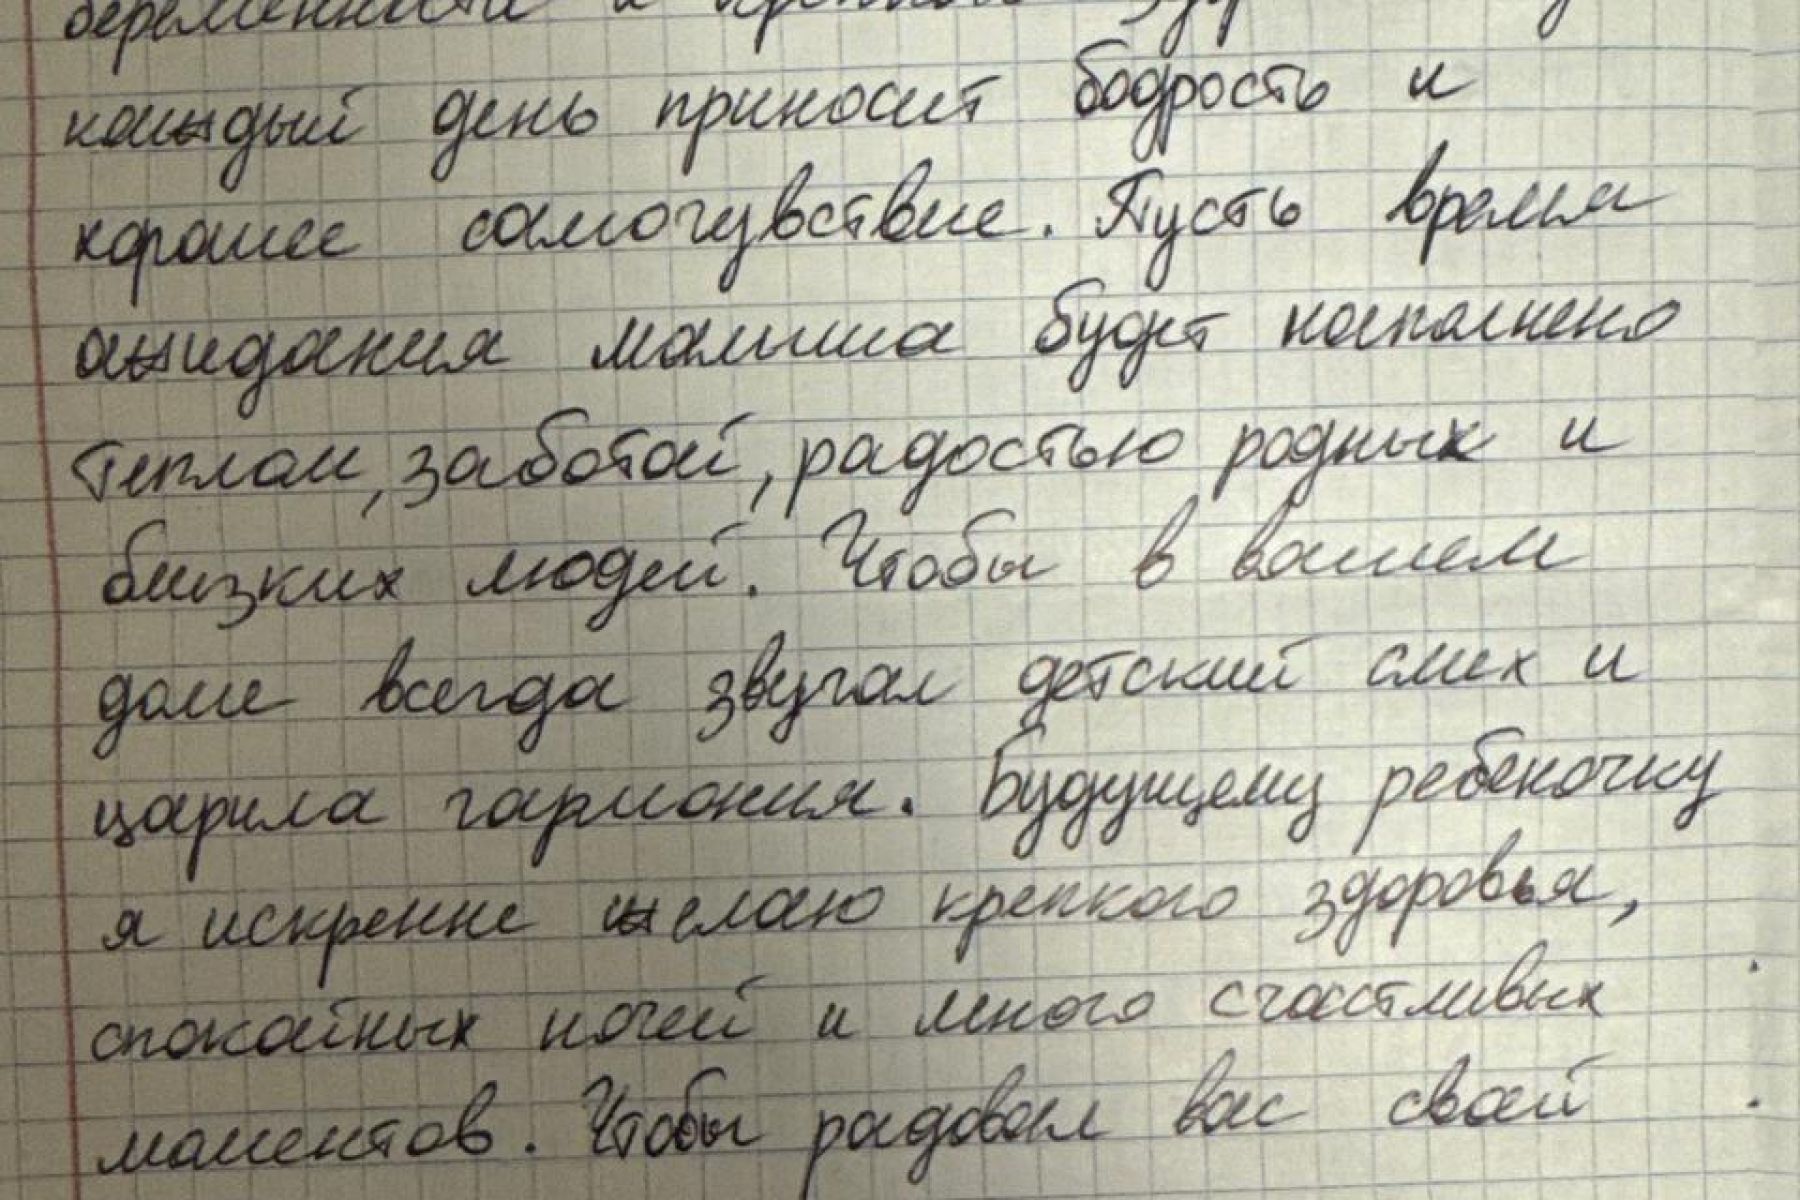 беременности и крепкого
каждый день приносит бодрость и
хорошее самочувствие. Пусть время
ожидания малыша будет наполнено
теплом, заботой, радостью родных и
близких людей. Чтобы в вашем
доме всегда звучал детский смех и
царила гармония. Будущему ребеночку
я искренне желаю крепкого здоровья,
спокойных ночей и много счастливых
моментов. Чтобы радовал вас свой